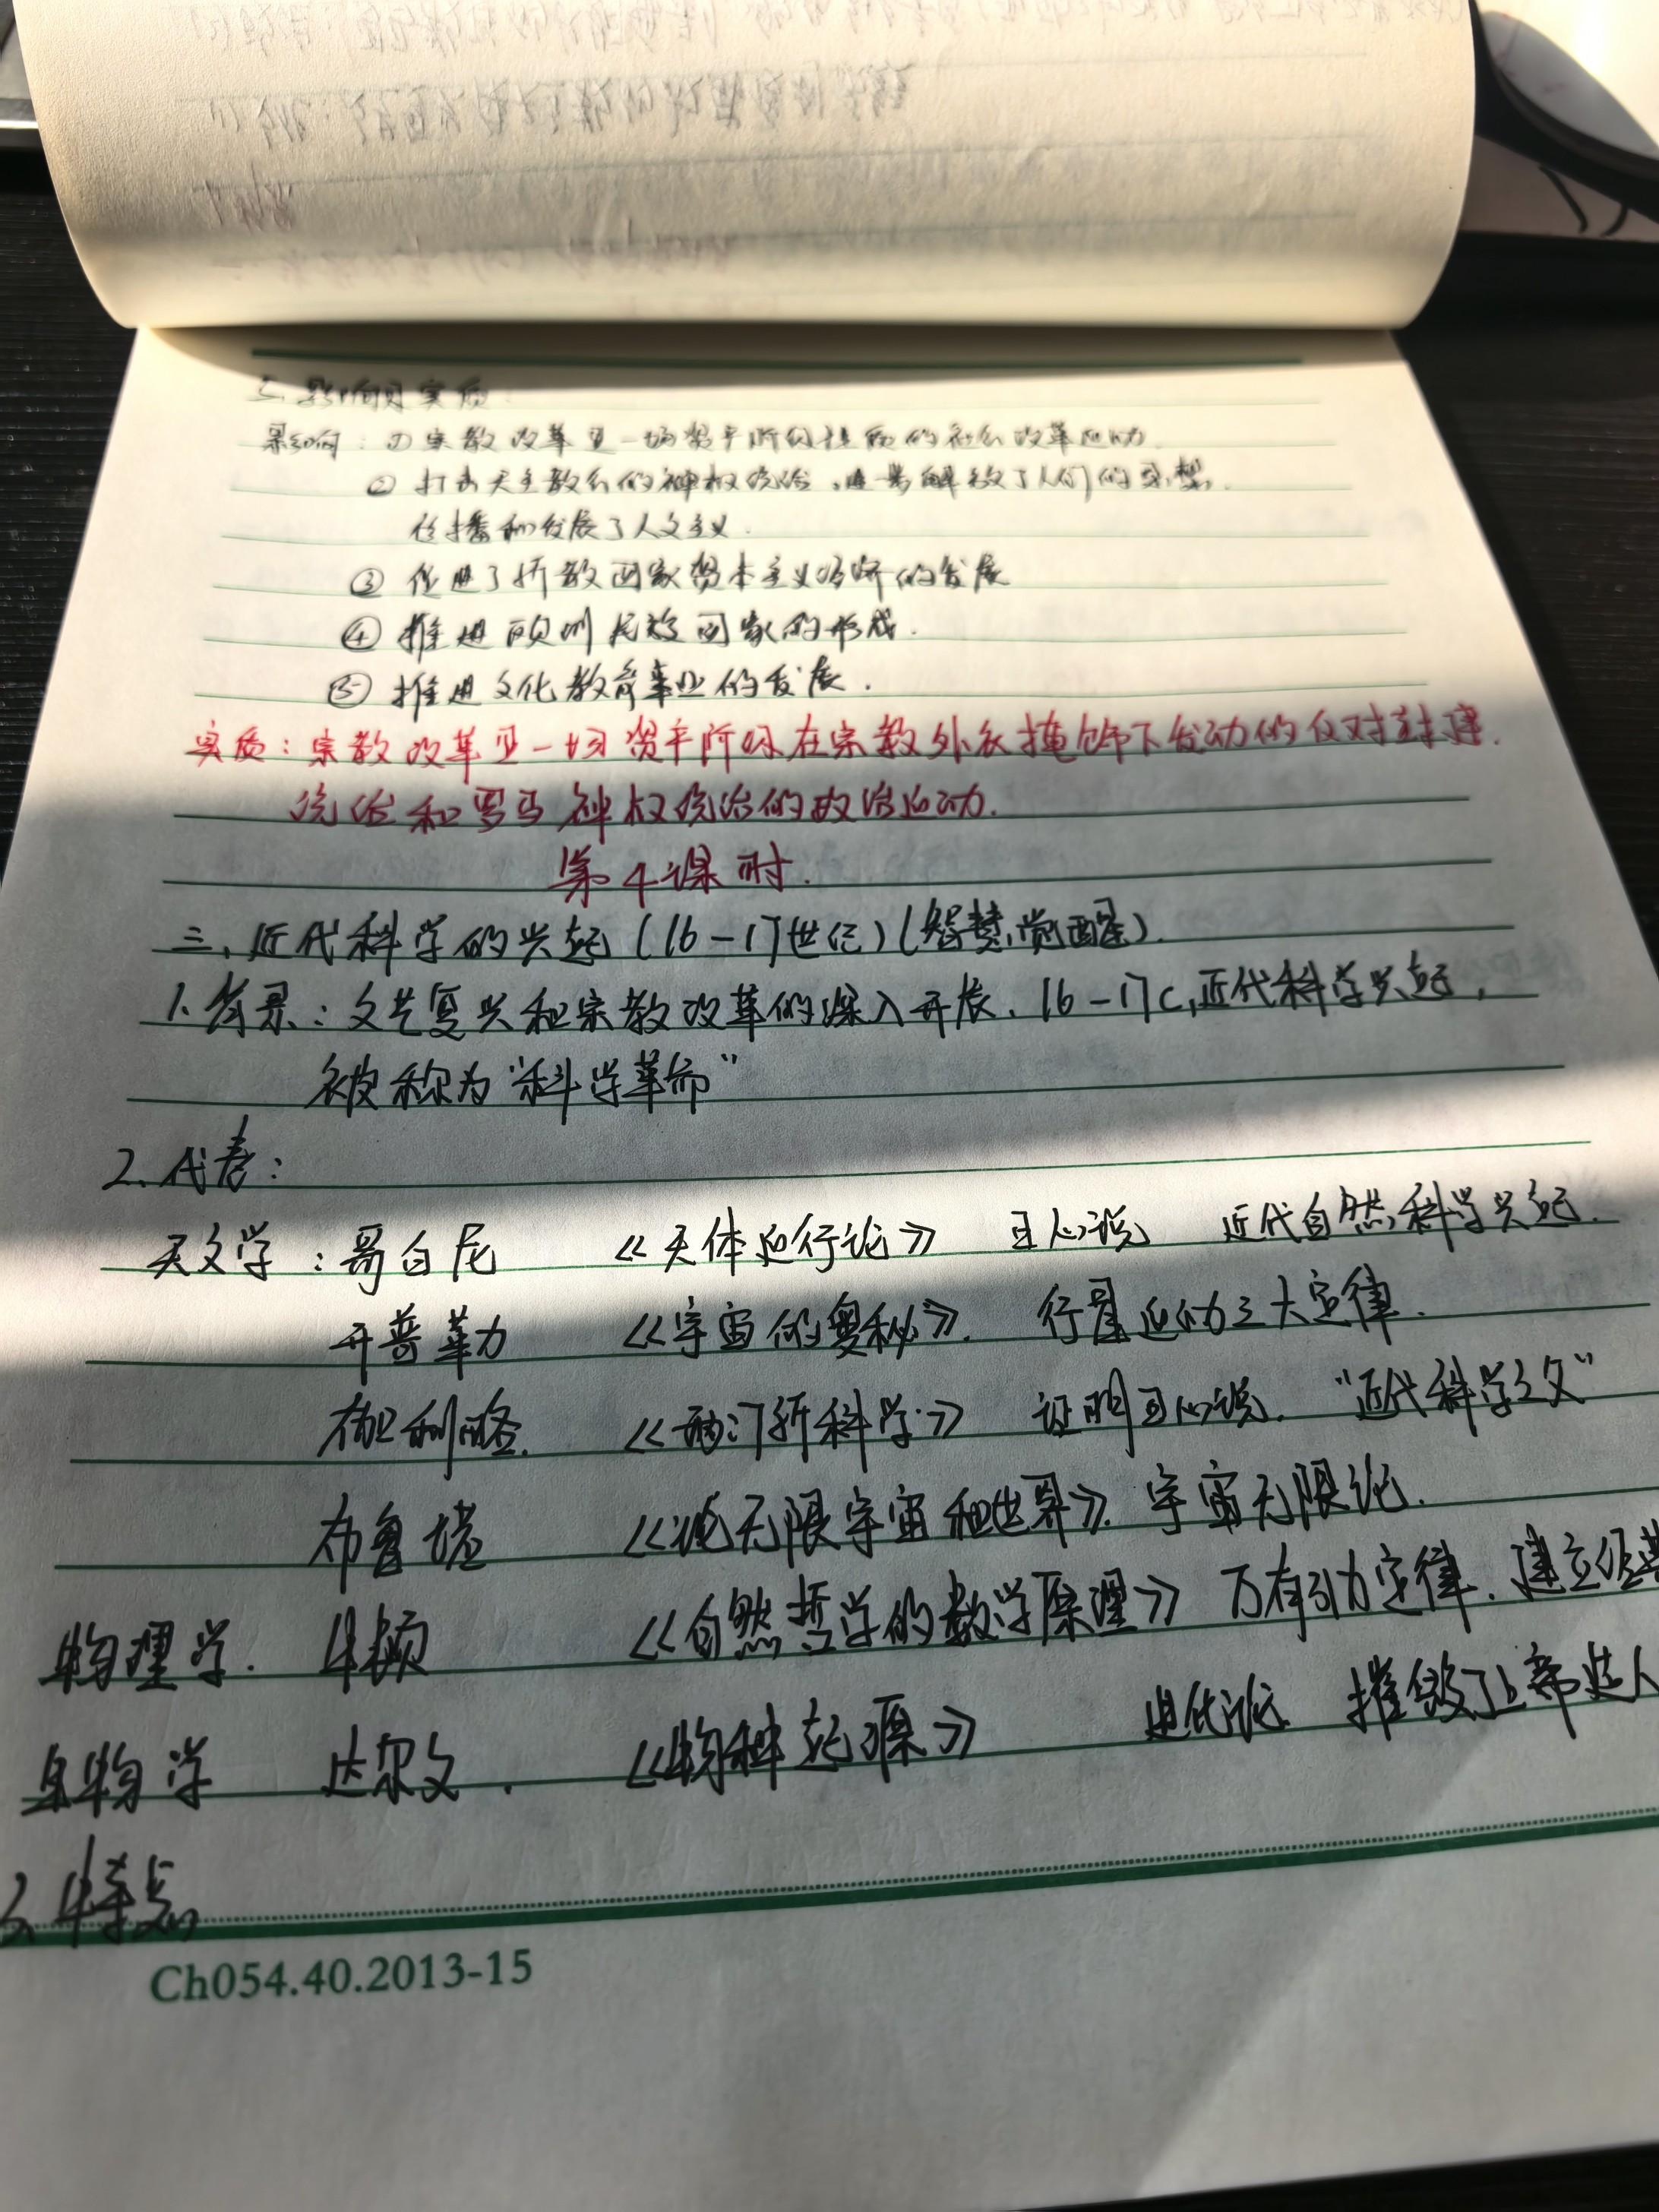 影响及实质
影响：①宗教改革是一场资产阶级性质的社会改革运动.
②打击天主教会的神权统治，进一步解放了人们的思想.
传播和发展了人文主义.
③促进了新教国家资本主义经济的发展
④推进欧洲民族国家的形成.
⑤推进文化教育事业的发展.
实质：宗教改革是一场资产阶级在宗教外衣掩饰下发动的反对封建
统治和罗马神权统治的政治运动.
第4课时.
三、近代科学的兴起(16-17世纪)(智慧觉醒).
1.背景：文艺复兴和宗教改革的深入开展. 16-17c,近代科学兴起，
被称为"科学革命"
2.代表：
天文学：哥白尼 《天体运行论》 日心说 近代自然科学兴起.
开普勒 《宇宙的奥秘》. 行星运动三大定律.
伽利略. 《两门新科学》 证明日心说. "近代科学之父"
布鲁诺 《论无限宇宙和世界》. 宇宙无限论.
物理学. 牛顿 《自然哲学的数学原理》 万有引力定律. 建立经典
生物学 达尔文. 《物种起源》 进化论. 摧毁了上帝造人
3.特点
Ch054.40.2013-15